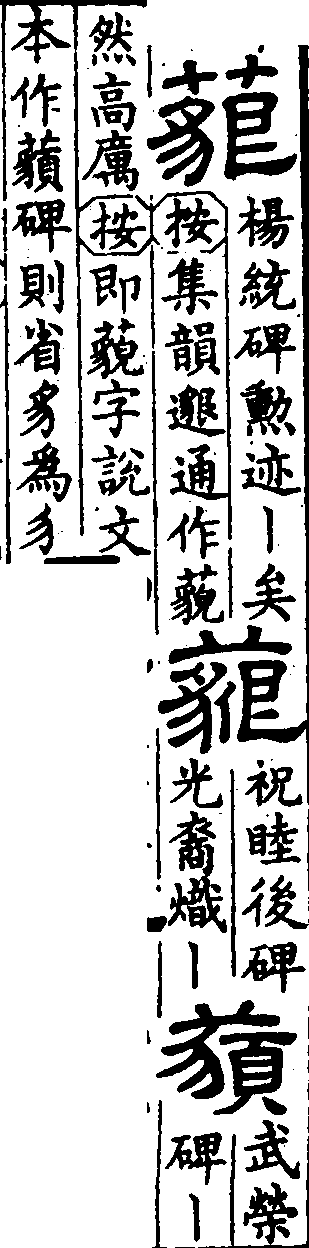 藐
楊統碑勲迹丨矣
按集韻邈通作藐
藐
祝睦後碑
光裔熾丨
武榮
碑丨
然高厲按即藐字說文
本作碑則省豸爲犭